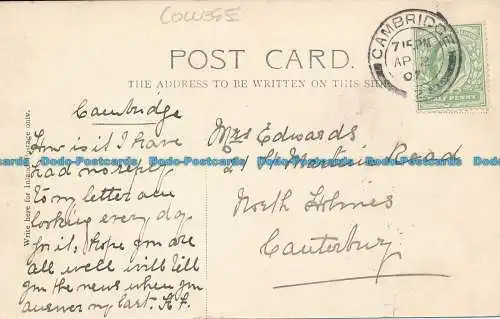 COLLEGE
POST CARD.
THE ADDRESS TO BE WRITTEN ON THIS SIDE.
CAMBRIDGE
7.15 PM
AP
07
HALFPENNY
Write here for Inland Postage only.
Cambridge
How is it I have
had no reply
to my letter am
looking every day
for it, hope you are
all well will tell
you the news when you
answer my last.
Mrs Edwards
21 St Martin's Road
North Holmes
Canterbury
Dado-Postcards Dado-Postcards Dado-Postcards Dado-Postcards Dado-Postcards